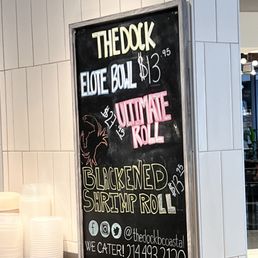 THE DOCK
ELOTE BOWL $13.95
ULTIMATE
ROLL
BLACKENED
SHRIMP ROLL $13
@thedockbcoastal
WE CATER! 214.493.2120